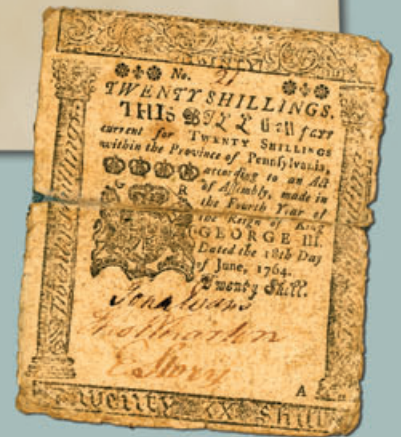 No.
TWENTY SHILLINGS.
THIS BILL shall pass
current for TWENTY SHILLINGS
within the Province of Pennsylvania,
according to an Act
of Assembly, made in
G R the Fourth Year of
the Reign of King
GEORGE III.
Dated the 18th Day
of June, 1764.
Twenty Shill.
Evans
Tho Wharton
Story
A
Twenty XX Shill
Twenty Shillings